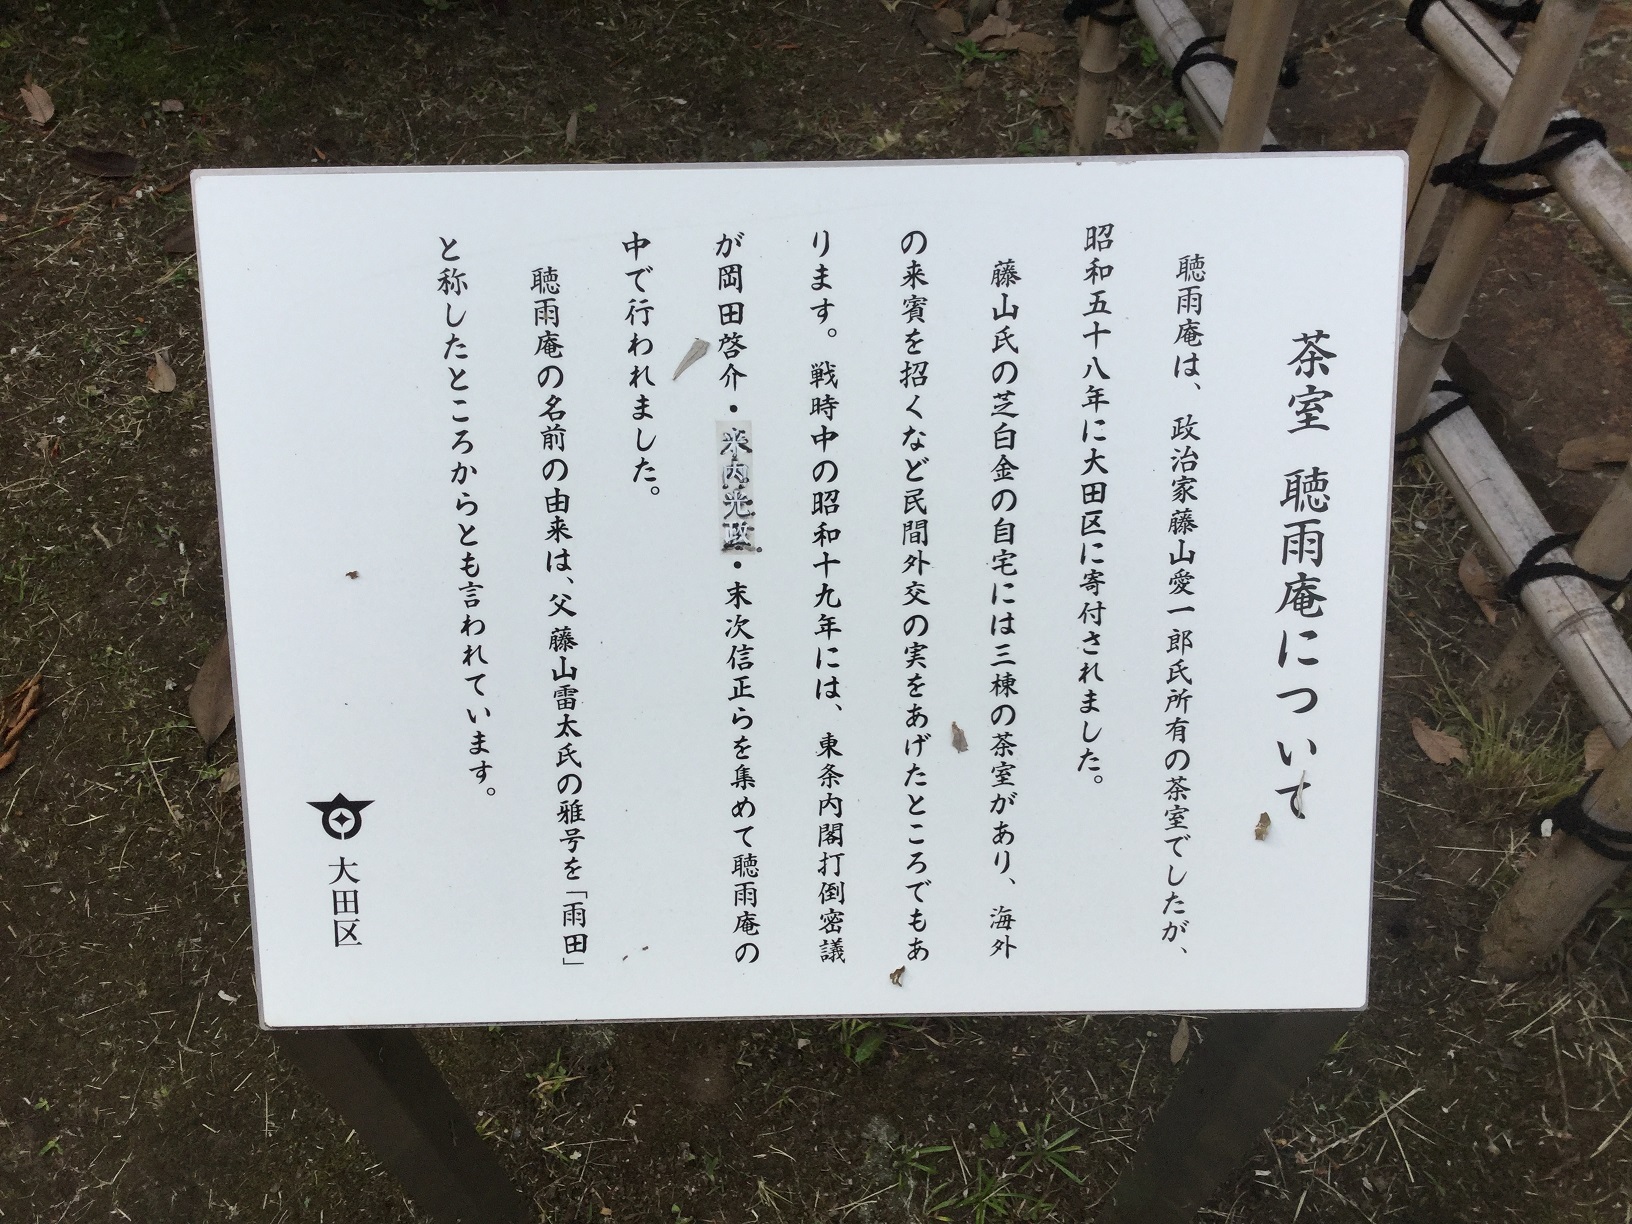 茶室 聴雨庵について
聴雨庵は、政治家藤山愛一郎氏所有の茶室でしたが、
昭和五十八年に大田区に寄付されました。
藤山氏の芝白金の自宅には三棟の茶室があり、海外
の来賓を招くなど民間外交の実をあげたところでもあ
ります。戦時中の昭和十九年には、東条内閣打倒密議
が岡田啓介・米内光政・末次信正らを集めて聴雨庵の
中で行われました。
聴雨庵の名前の由来は、父藤山雷太氏の雅号を「雨田」
と称したところからとも言われています。
大田区